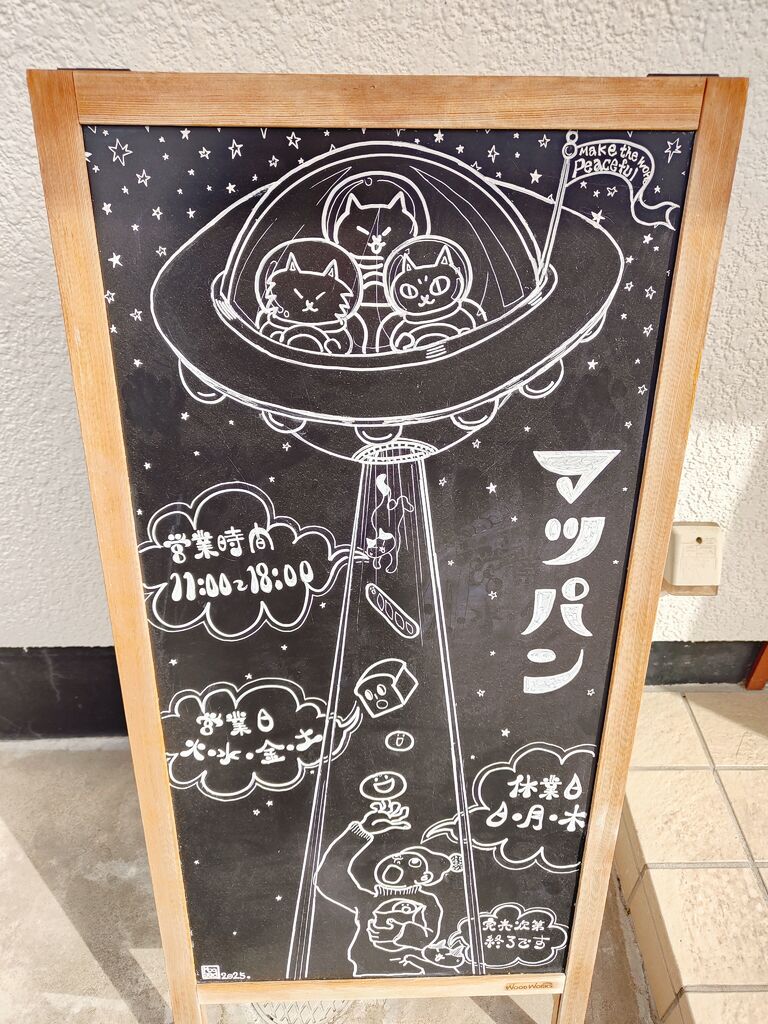 Make the
Peaceful
マツパン
営業時間
11:00~18:00
営業日
火・水・金・土
休業日
日・月・木
完売次第
終了です
2025.
WOODWORKS